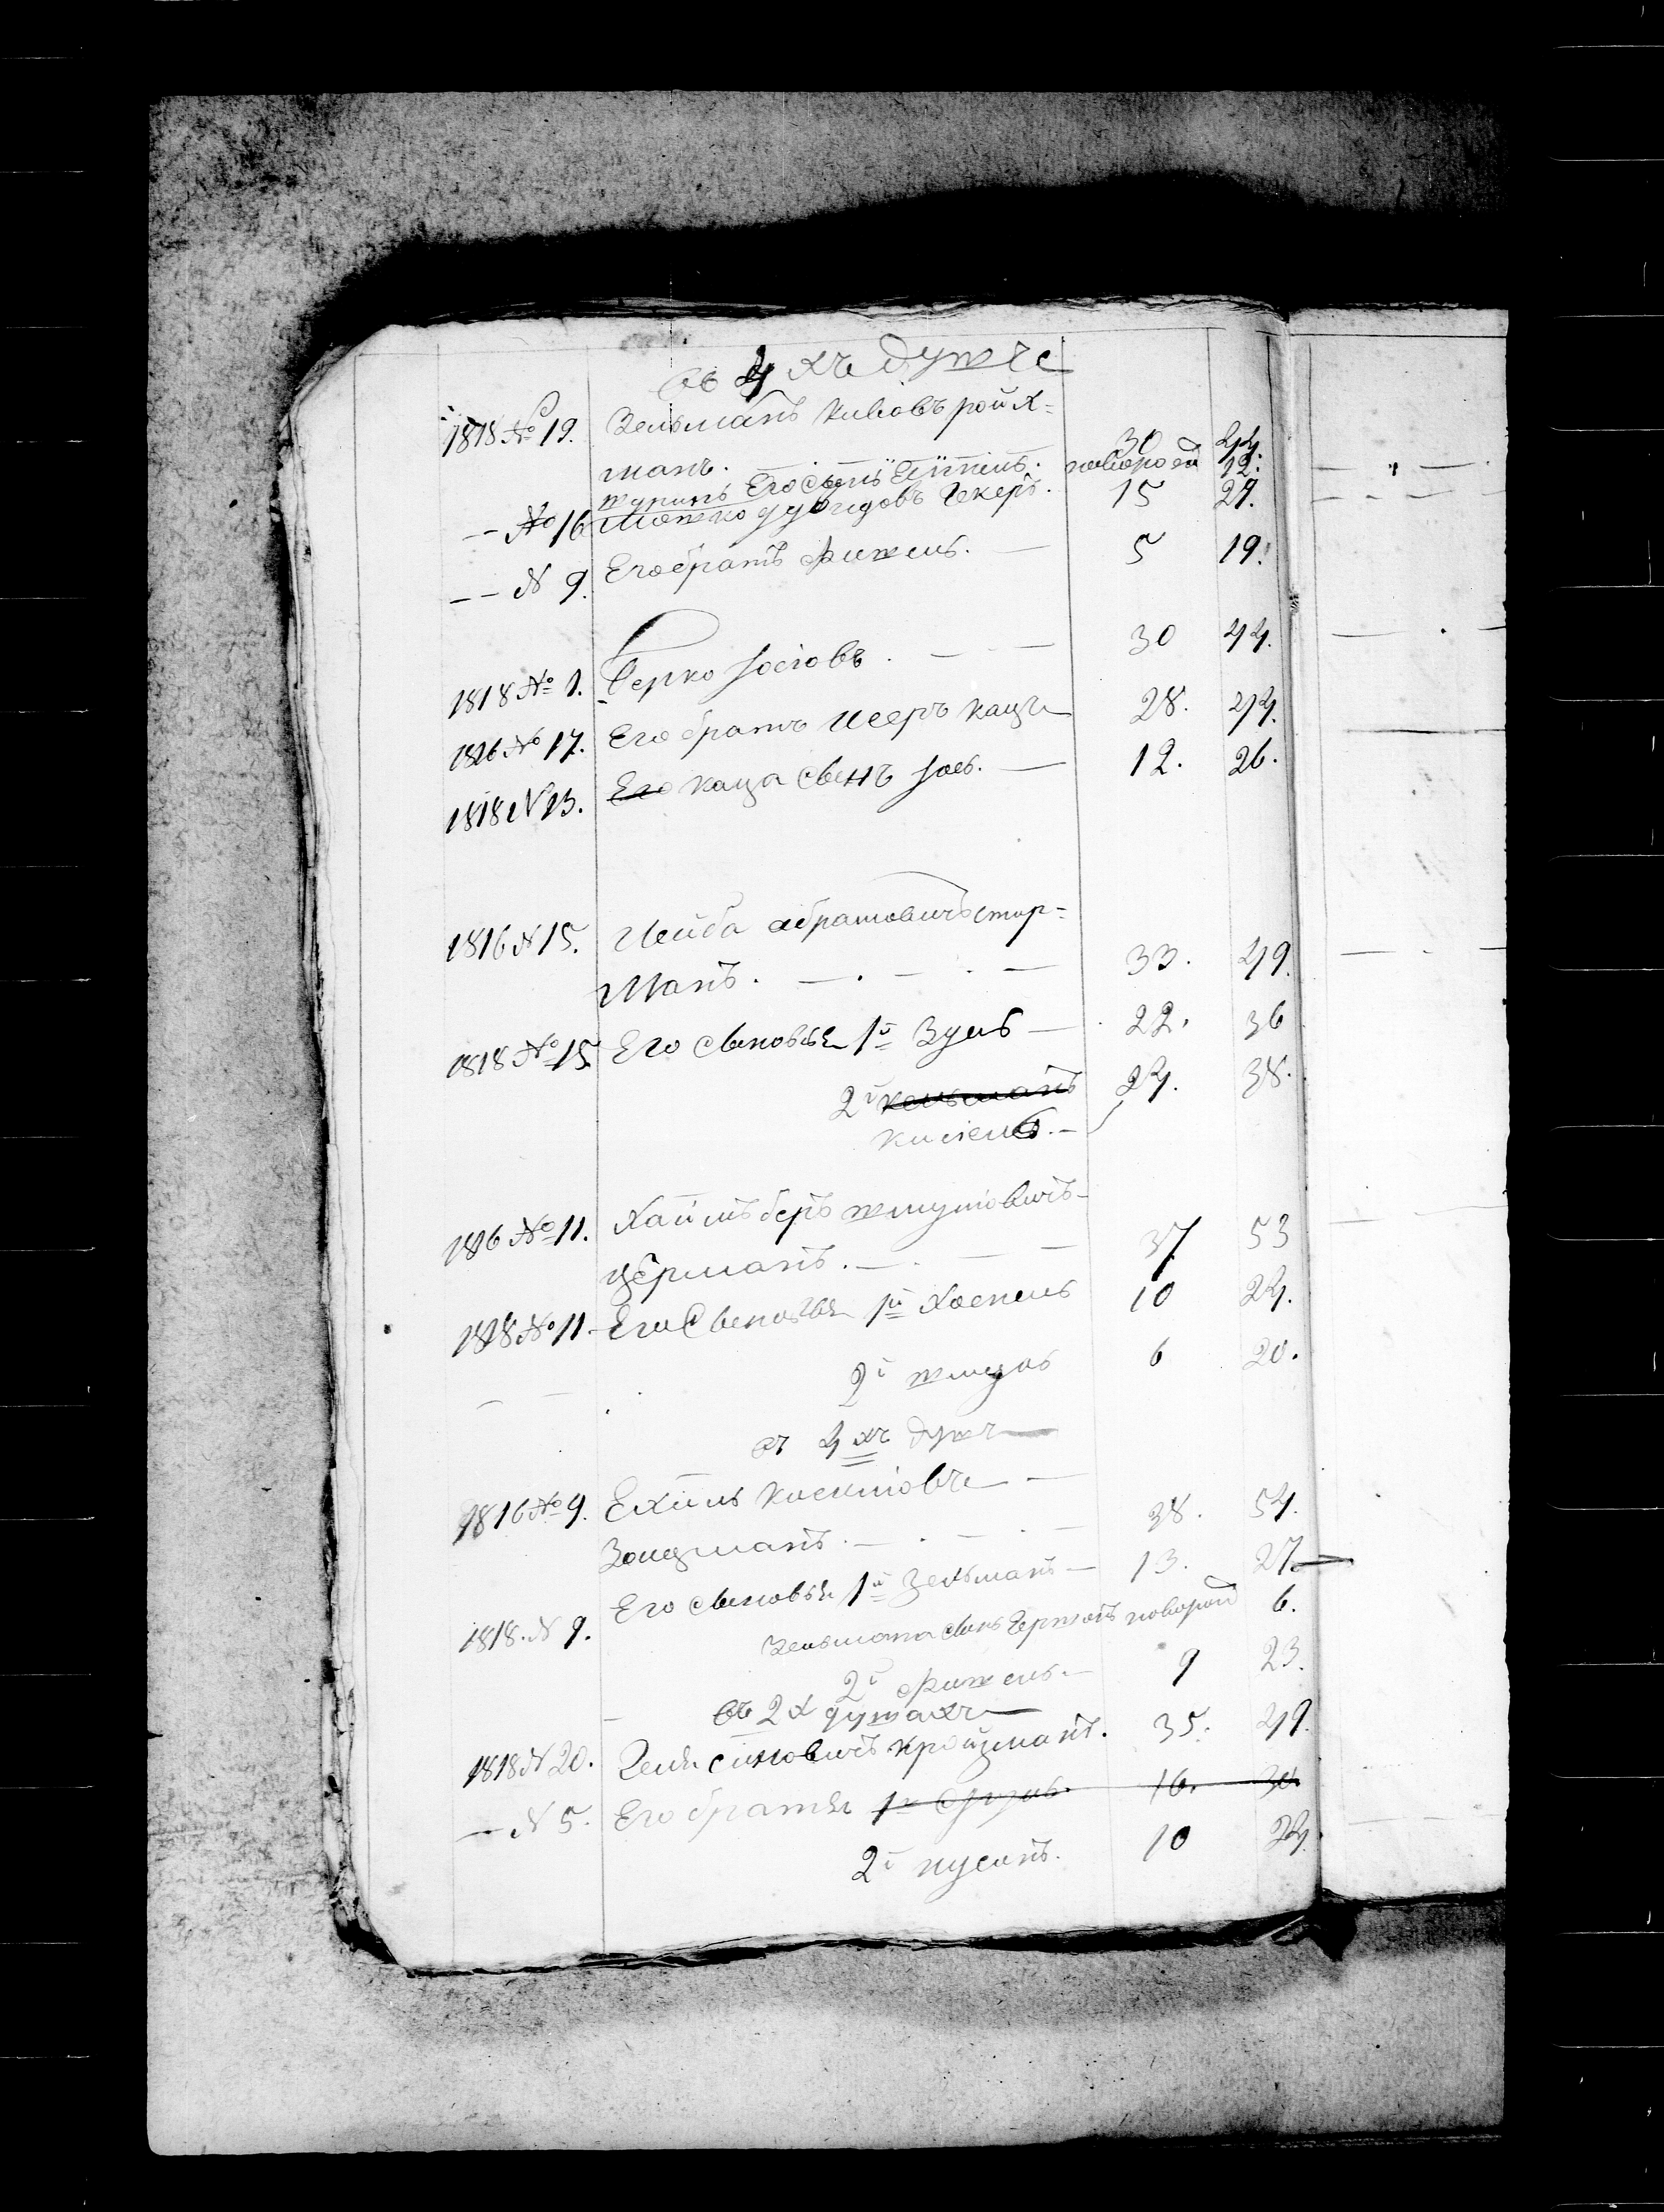 въ 4 хъ душъ
1818 № 19. Зельманъ Кивовъ Ройх=
манъ. 30 44.
Его сынъ новород 12.
-- № 16 Мошко Дувидовъ Гекеръ. 15 29.
-- N 9. Его братъ Фишель. — 5 19.
1818 № 1. Берко Іосіовъ. — — 30 44.
1816 № 17. Его братъ Исеръ Каца 28. 44.
1818 N 13. Его Каца сынъ Іось. — 12. 26.
1816 N 15. Лейба Абрамовичъ Штер=
манъ. — . — . — 33. 49.
1818 № 15 Его сыновья 1й Зусь — 22. 36
2й Кельманъ 24. 38.
Кисіель. —
1816 № 11. Хаимъ Беръ Шмулевичъ
Церманъ. — . — — 37 53
1818 № 11. Его сыновья 1й Хаскель 10 24.
2й 6 20.
въ 4 хъ душъ
1816 № 9. Ехиль
Зондманъ. — . — . — 38. 54.
1818. N 9. Его сыновья 1й Зельманъ — 13. 27.
Зельмана сынъ Гершонъ новорожд 6.
2й Фишель. — 9 23.
въ 2 х душахъ
1818 N 20. Симовичъ Кройзманъ. 35. 49.
— N 5. Его братья 1й 16. 30
2й Нусинъ. 10 24.